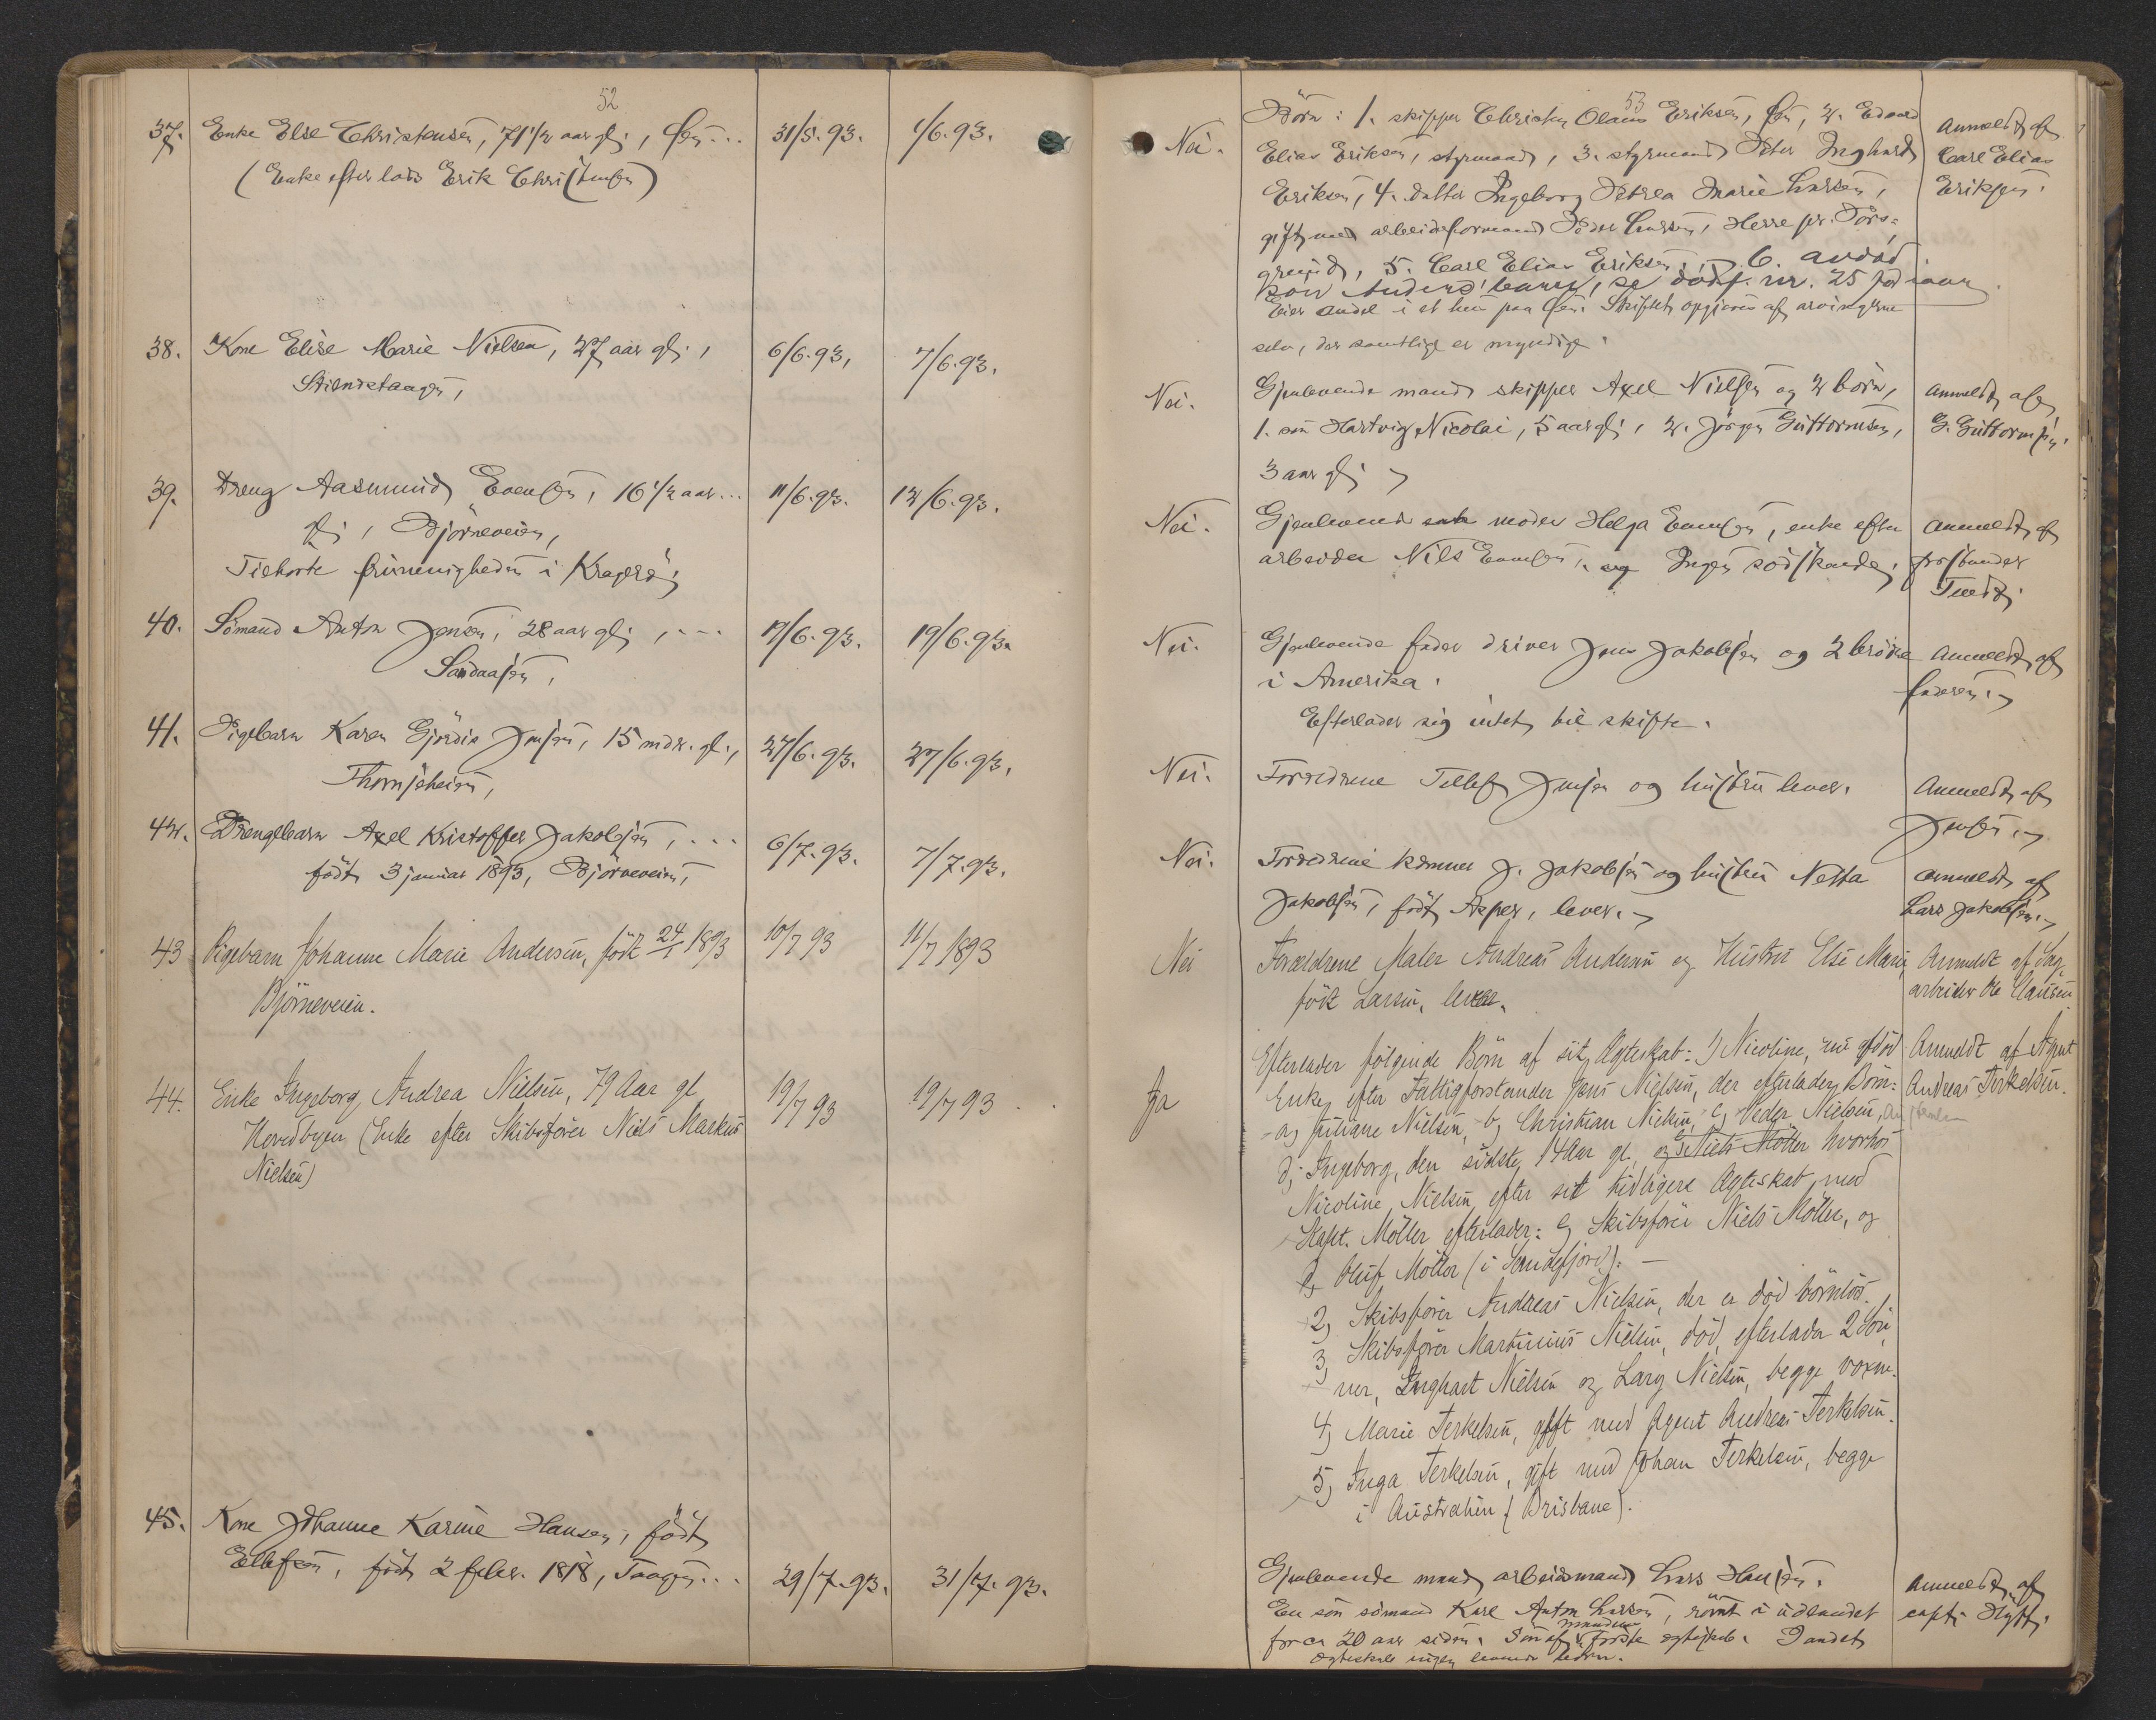 52
37. Enke Else Christensen, 71 1/2 aar gl., Øen... 31/5.93. 1/6.93.
(Enke efter lods Erik Christensen)
38. Kone Elise Marie Nielsen, 27 aar gl., 6/6.93, 7/6.93.
Stilnestangen,
39. Dreng Aasmund Evensen, 16 1/2 aar... 11/6.93. 12/6.93.
gl., Bjørneveien,
Tilhørte frimenigheden i Kragerø;
40. Sømand Anton Jensen, 28 aar gl., ... 17/6.93. 19/6.93.
Sandaasen,
41. Pigebarn Karen Gjørdis Jensen, 15 mdr. gl., 27/6.93. 27/6.93.
Thomsheien,
42. Drengebarn Axel Kristoffer Jakobsen, ... 6/7.93. 7/7.93.
født 3 januar 1893, Bjørneveien,
43 Pigebarn Johanne Marie Andersen, født 24/1 1893 10/7 93 11/7 1893
Bjørneveien.
44. Enke Ingeborg Andrea Nielsen, 79 Aar gl 19/7 93 19/7 93
Hovedbyen (Enke efter Skibsfører Niels Markus
Nielsen)
45. Kone Johanne Karine Hansen, født
Ellefsen, født 2 febr. 1818, Tangen... 29/7.93. 31/7.93.
53
Børn: 1. skipper Christen Olaus Eriksen, Øen, 2. Edvard
Nei. Elias Eriksen, styrmand, 3. styrmand Peter Inghard
Eriksen, 4. datter Ingeborg Petrea Marie Larsen,
gift med arbeidsformand Peder Larsen, Herre pr. Pors-
grund, 5. Carl Elias Eriksen, 6. avdød
søn Anders' barn, se dødsf. nr. 25 for iaar.
Eier andel i et hus paa Øen. Skiftet opgjøres af arvingerne
selv, der samtlige er myndige.
Anmeldt af
Carl Elias
Eriksen.
Nei. Gjenlevende mand skipper Axel Nielsen og 2 børn,
1. søn Hartvig Nicolai, 5 aar gl., 2. Jørgen Guttormsen,
3 aar gl.
Anmeldt af
G. Guttormsen.
Nei. Gjenlevende moder Helga Evensen, enke efter
arbeider Nils Evensen, og Ingen sødskende;
Anmeldt af
forstander
Nei. Gjenlevende fader driver Jens Jakobsen og 2 brødre
i Amerika.
Efterlader sig intet til skifte.
Anmeldt af
faderen.
Nei. Forældrene Tellef Jensen og hustru lever.
Anmeldt af
Jensen.
Nei. Forældrene kæmner J. Jakobsen og hustru Netta
Jakobsen, født Asper, lever.
Anmeldt af
Lars Jakobsen.
Nei Forældrene Maler Andreas Andersen og Hustru Else Marie,
født Larsen, lever.
Anmeldt af Dag-
arbeider Ole Clausen
Ja Efterlader følgende Børn af sit Ægteskab: 1) Nicoline, nu afdød
Enke efter Fattigforstander Jens Nielsen, der efterlader Børn:
a) Juliane Nielsen, b) Christian Nielsen, c) Peder Nielsen,
d) Ingeborg, den sidste 14 Aar gl. og e) Niels Möller hvorhos
Nicoline Nielsen efter sit tidligere Ægteskab med
Kapt. Möller efterlader: e) Skibsfører Niels Möller, og
f) Oluf Möller (i Sandefjord). —
2) Skibsfører Andreas Nielsen, der er død børnløs.
3) Skibsfører Martinius Nielsen, død, efterlader 2 Søn-
ner, Inghart Nielsen og Lars Nielsen, begge voxne.
4) Marie Terkelsen, gift med Agent Andreas Terkelsen.
5) Inga Terkelsen, gift med Johan Terkelsen, begge
i Australien (Brisbane).
Anmeldt af Agent
Andreas Terkelsen.
Gjenlevende mand arbeidsmand Lars Hansen.
En søn sømand Karl Anton Larsen, rømt i udlandet
for ca 20 aar siden. Søn af mandens første ægteskab. I andet
ægteskab ingen levende børn.
Anmeldt af
capt.